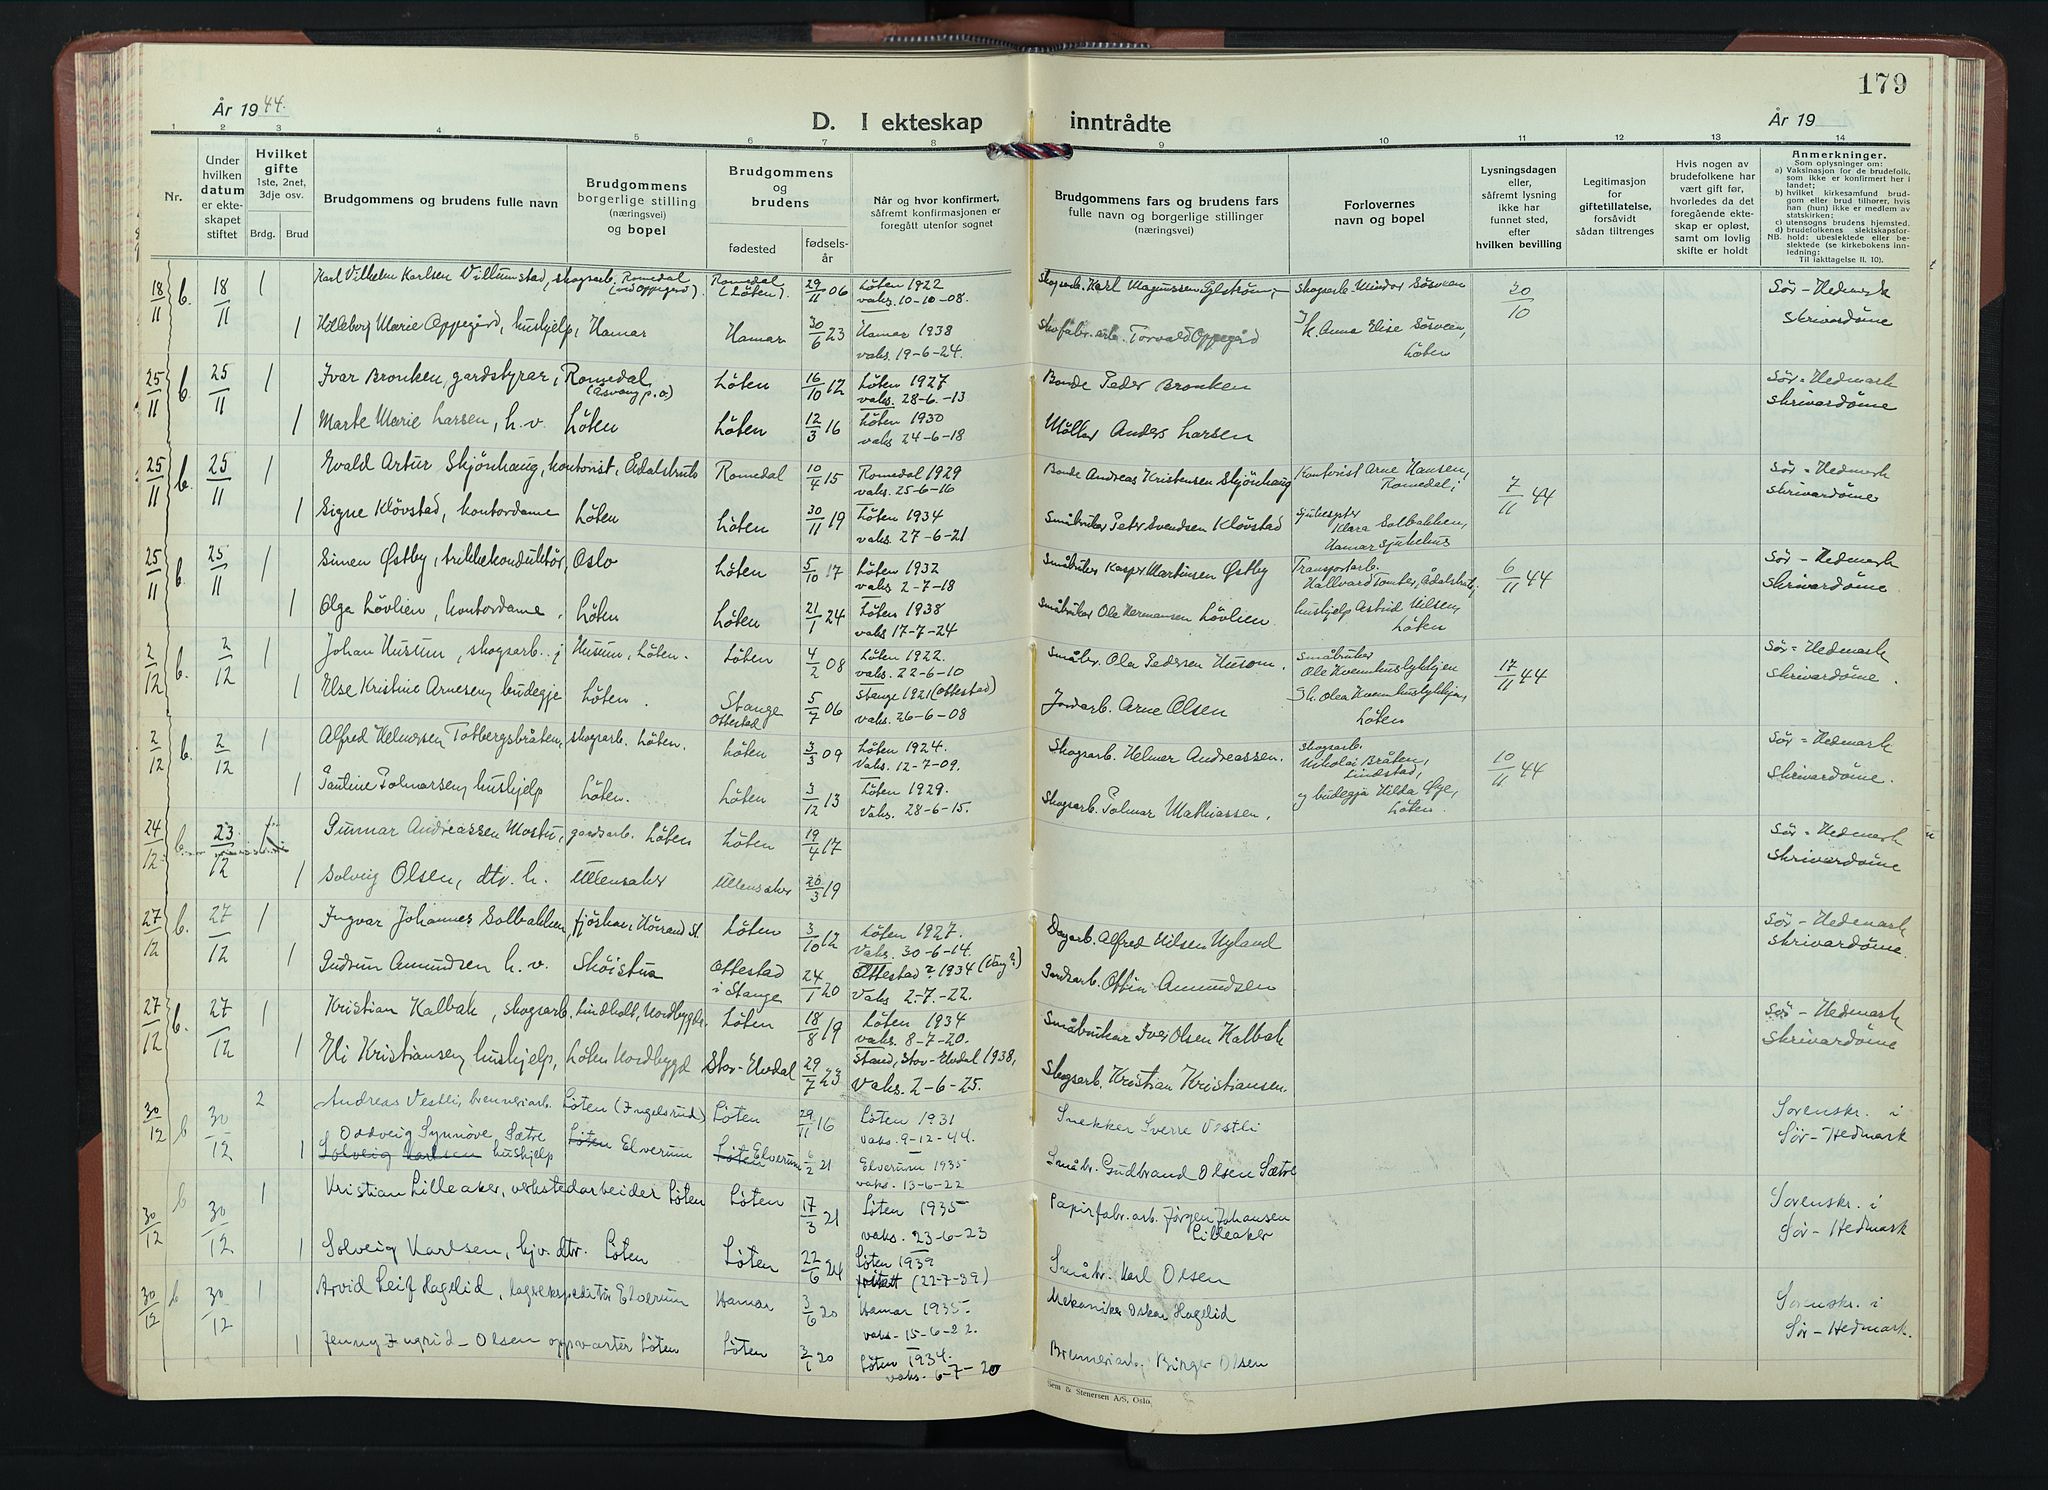 År 1944.
D. I ekteskap inntrådte
År 19
179
1 2 3 4 5 6 7 8 9 10 11 12 13 14
Nr.
Under hvilken datum er ekteskapet stiftet
Hvilket gifte 1ste, 2net, 3dje osv.
Brdg. Brud
Brudgommens og brudens fulle navn
Brudgommens borgerlige stilling (næringsvei) og bopel
Brudgommens og brudens
fødested
fødsels-år
Når og hvor konfirmert, såfremt konfirmasjonen er foregått utenfor sognet
Brudgommens fars og brudens fars fulle navn og borgerlige stillinger (næringsvei)
Forlovernes navn og bopel
Lysningsdagen eller, såfremt lysning ikke har funnet sted, efter hvilken bevilling
Legitimasjon for giftetillatelse, forsåvidt sådan tiltrenges
Hvis nogen av brudefolkene har vært gift før, hvorledes da det foregående ekteskap er opløst, samt om lovlig skifte er holdt
Anmerkninger.
Som oplysninger om:
a) Vaksinasjon for de brudefolk, som ikke er konfirmert her i landet;
b) hvilket kirkesamfund brudgom eller brud tilhører, hvis han (hun) ikke er medlem av statskirken;
c) utensogns brudens hjemsted.
d) brudefolkenes slektskapsforhold: ubeslektede eller beslektede (se kirkebokens innledning:
NB. Til iakttagelse II. 10).
18/11 b. 18/11 1 Karl Vilhelm Karlsen Villumstad, skogsarb. Romedal (ved Oppegård). Romedal (Löten). 29/11 06 Löten 1922 vaks. 10-10-08. Skogsarb. Karl Magnussen Skogsarb. 20/10 Sør-Hedmark skrivardöme
1 Marie Oppegård, hushjelp, Hamar Hamar 30/6 23 Hamar 1938 vaks. 19-6-24. Skofabr.arb. Torvald Oppegård Anna Elise Sösveen, Löten
25/11 b 25/11 1 Ivar Bronken, gardstyrar, Romedal (Åsvang p.o.) Löten 16/10 12 Löten 1927 vaks. 28-6-13 Bonde Peder Bronken Sør-Hedmark skrivardöme
1 Marte Marie Larsen, h.v. Löten Löten 12/3 16 Löten 1930 vaks 24-6-18 Möller Anders Larsen
25/11 b. 25/11 1 Evald Artur Skjönhaug, kontorist, Ådalsbruk Romedal 10/4 15 Romedal 1929 vaks. 25-6-16 Bonde Andreas Kristensen Skjönhaug Kontorist Arne Hansen, Romedal; 7/11 44 Sør-Hedmark skrivardöme
1 Signe Klövstad, kontordame Löten Löten 30/11 19 Löten 1934 vaks. 27-6-21 Småbruker Peter Svendsen Klövstad Klara Solbakken, Hamar sjukehus
25/11 b. 25/11 1 Simen Østby, trikkekonduktör, Oslo Löten 5/10 17 Löten 1932 vaks. 2-7-18 Småbruker Kasper Martinsen Østby Transportarb. Hallvard Tomter, Ådalsbruk, 6/11 44 Sør-Hedmark skrivardöme
1 Olga Lövlien, kontordame, Löten Löten 21/1 24 Löten 1938 vaks 17-7-24 Småbruker Ole Hermansen Lövlien hushjelp Astrid Nilsen, Löten
2/12 b. 2/12 1 Johan Husum, skogsarb. Husum, Löten. Löten 4/2 08 Löten 1922. vaks. 22-6-10 Småbr. Ole Pedersen Husom. Småbruker Ole Kvernhuslykkjen 17/11 44 Sør-Hedmark skrivardöme.
1 Else Kristine Arnesen, budegje Löten. Stange Ottestad 5/7 06 Stange 1921 (Ottestad) vaks. 26-6-08 Jordarb. Arne Olsen Olea Kvernhuslykkjen, Löten
2/12 b. 2/12 1 Alfred Helmersen Totbergsbråten, skogsarb. Löten. Löten 3/3 09 Löten 1924. Vaks. 12-7-09. Skogsarb. Helmer Andreassen. Skogsarb. Nikolai Bråten, Lindstad, 10/11 44 Sør-Hedmark skrivardöme.
1 Pauline Polmarsen, hushjelp Löten. Löten 3/12 13 Löten 1929. Vaks. 28-6-15. Skogsarb. Polmar Mathiassen. og budegja Hilda Øye, Löten.
24/12 b 23/12 1 Gunnar Andreassen Mostu, gardsarb. Löten Löten 19/4 17 Sør-Hedmark skrivardöme
1 Solveig Olsen, dtr. h. Ullensaker Ullensaker 20/3 19
27/12 b. 27/12 1 Ingvar Johannes Solbakken, fjöskar, Hörsand st. Löten 3/10 12 Löten 1927. Vaks. 30-6-14. Dagarb. Alfred Nilsen Nyland Sør-Hedmark skrivardöme.
1 Gudrun Amundsen h.v. Sköistua Ottestad i Stange 24/1 20 Ottestad? 1934 (Vang?) Vaks 2-7-22. Gardsarb. Ottin Amundsen
27/12 b. 27/12 1 Kristian Kalbak, skogsarb. Lindholt, Nordbygda. Löten 18/8 19 Löten 1934 vaks. 8-7-20. Småbrukar Iver Olsen Kalbak Sør-Hedmark skrivardöme
1 Eli Kristiansen, hushjelp, Löten Nordbygd Stor-Elvdal 29/7 23 Strand, Stor-Elvdal 1938, Vaks. 2-6-25. Skogsarb. Kristian Kristiansen.
30/12 b 30/12 2 Andreas Vestli, brenneriarb. Löten (Ingelsrud) Löten 29/11 16 Löten 1931 vaks. 9-12-44. Snekker Sverre Vestli Sorenskr. i Sör-Hedmark
1 Oddveig Synnöve Sætre Solveig Karlsen hushjelp Löten Elverum Löten Elverum 6/2 21 Elverum 1935 vaks. 13-6-22 Småbr. Gudbrand Olsen Sætre
30/12 b 30/12 1 Kristian Lilleaker, verkstedarbeider Löten Löten 17/3 21 Löten 1935 vaks. 23-6-23 Papirfabr.arb. Jörgen Johansen Lilleaker Sorenskr. i Sør-Hedmark
1 Solveig Karlsen, hjv. dtr. Löten Löten 22/6 24 Löten 1939 (22-7-39) Småbr. Karl Olsen
30/12 b 30/12 1 Arvid Leif Hagelid, lagerekspeditör Elverum Hamar 3/6 20 Hamar 1935. vaks. 15-6-22. Mekaniker Oskar Hagelid Sorenskr. i Sør-Hedmark.
1 Jenny Ingrid Olsen oppvarter Löten Löten 3/1 20 Löten 1934. vaks. 6-7-20 Brenneriarb. Birger Olsen
Sem & Stenersen A/S, Oslo.